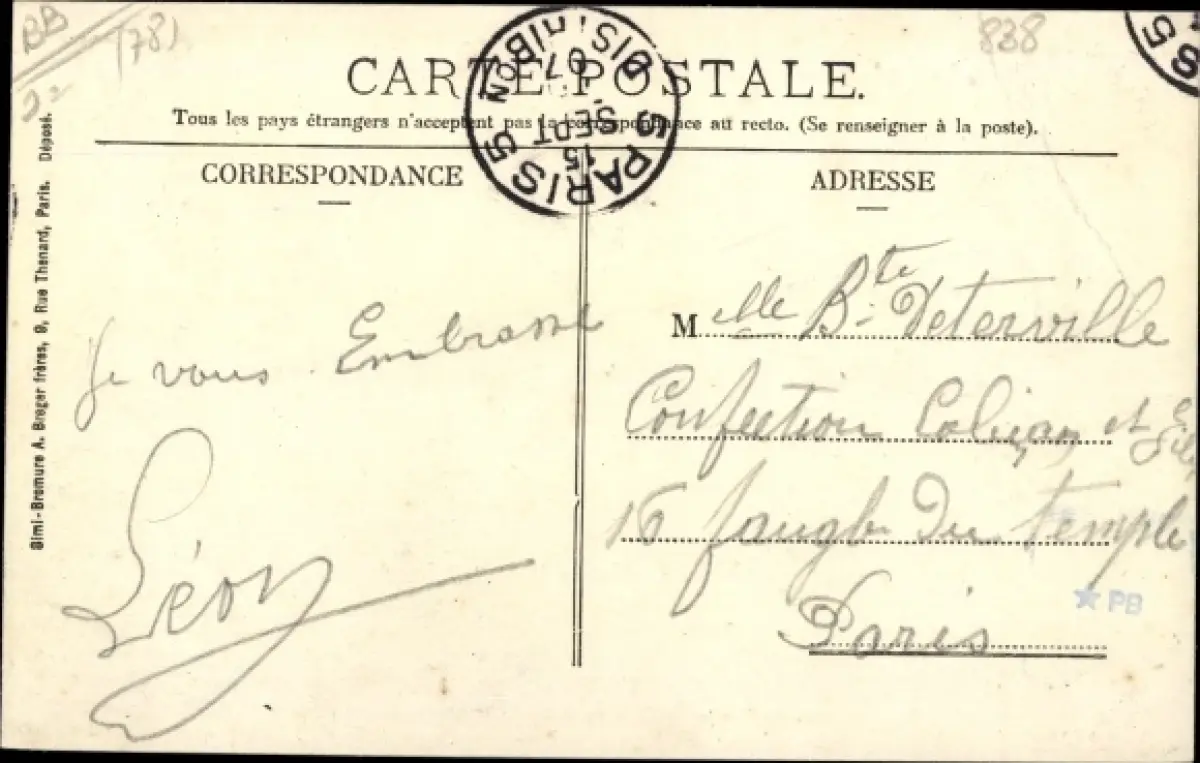 BB
(78)
838
CARTE POSTALE.
Tous les pays étrangers n'acceptent pas la correspondance au recto. (Se renseigner à la poste).
PARIS 5
15
SEPT
07
PARIS 5
CORRESPONDANCE
ADRESSE
Simi-Bromure A. Breger frères, 9, Rue Thenard, Paris. Déposé.
Je vous Embrasse
Léon
Melle Bte Deterville
Confection et
16 faugb du temple
Paris
PB